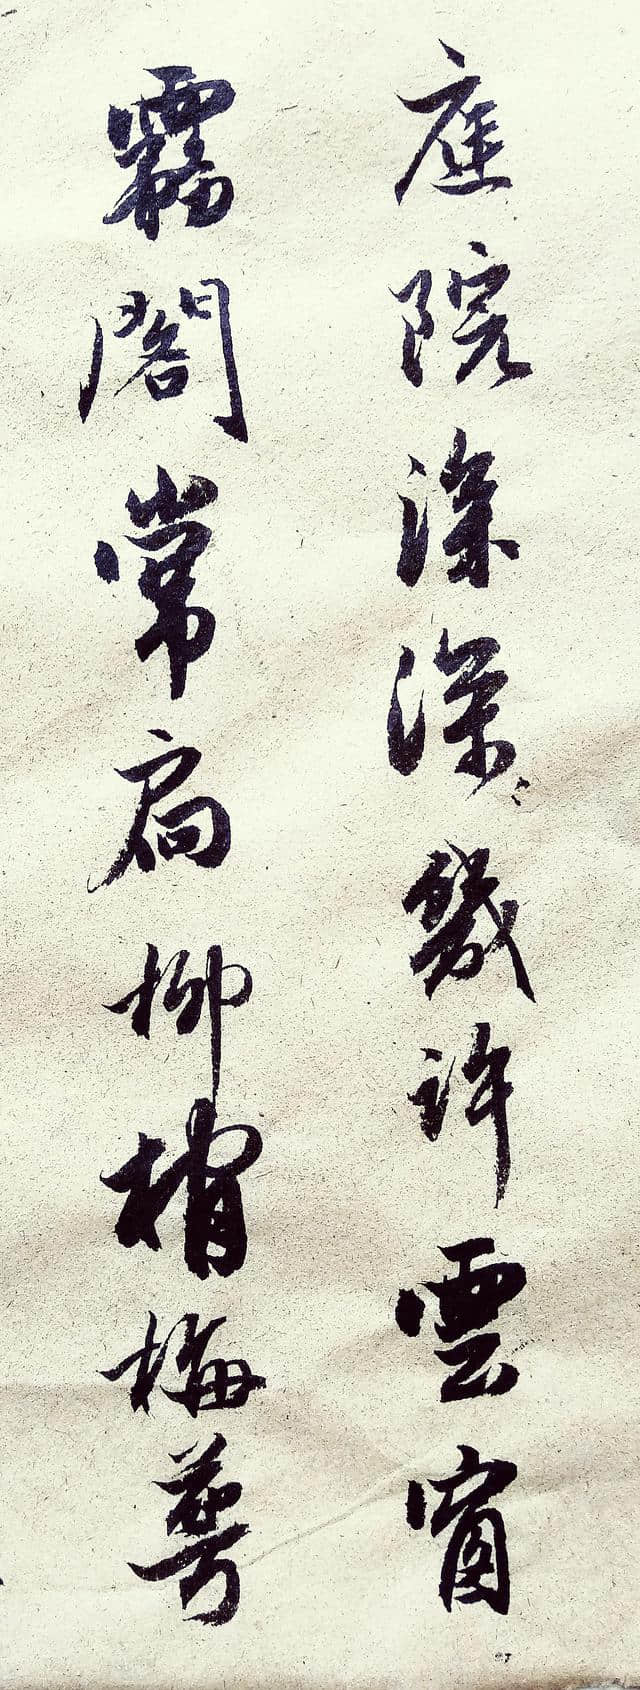 庭院深深幾許雲窗
霧閣常扃柳梢梅萼